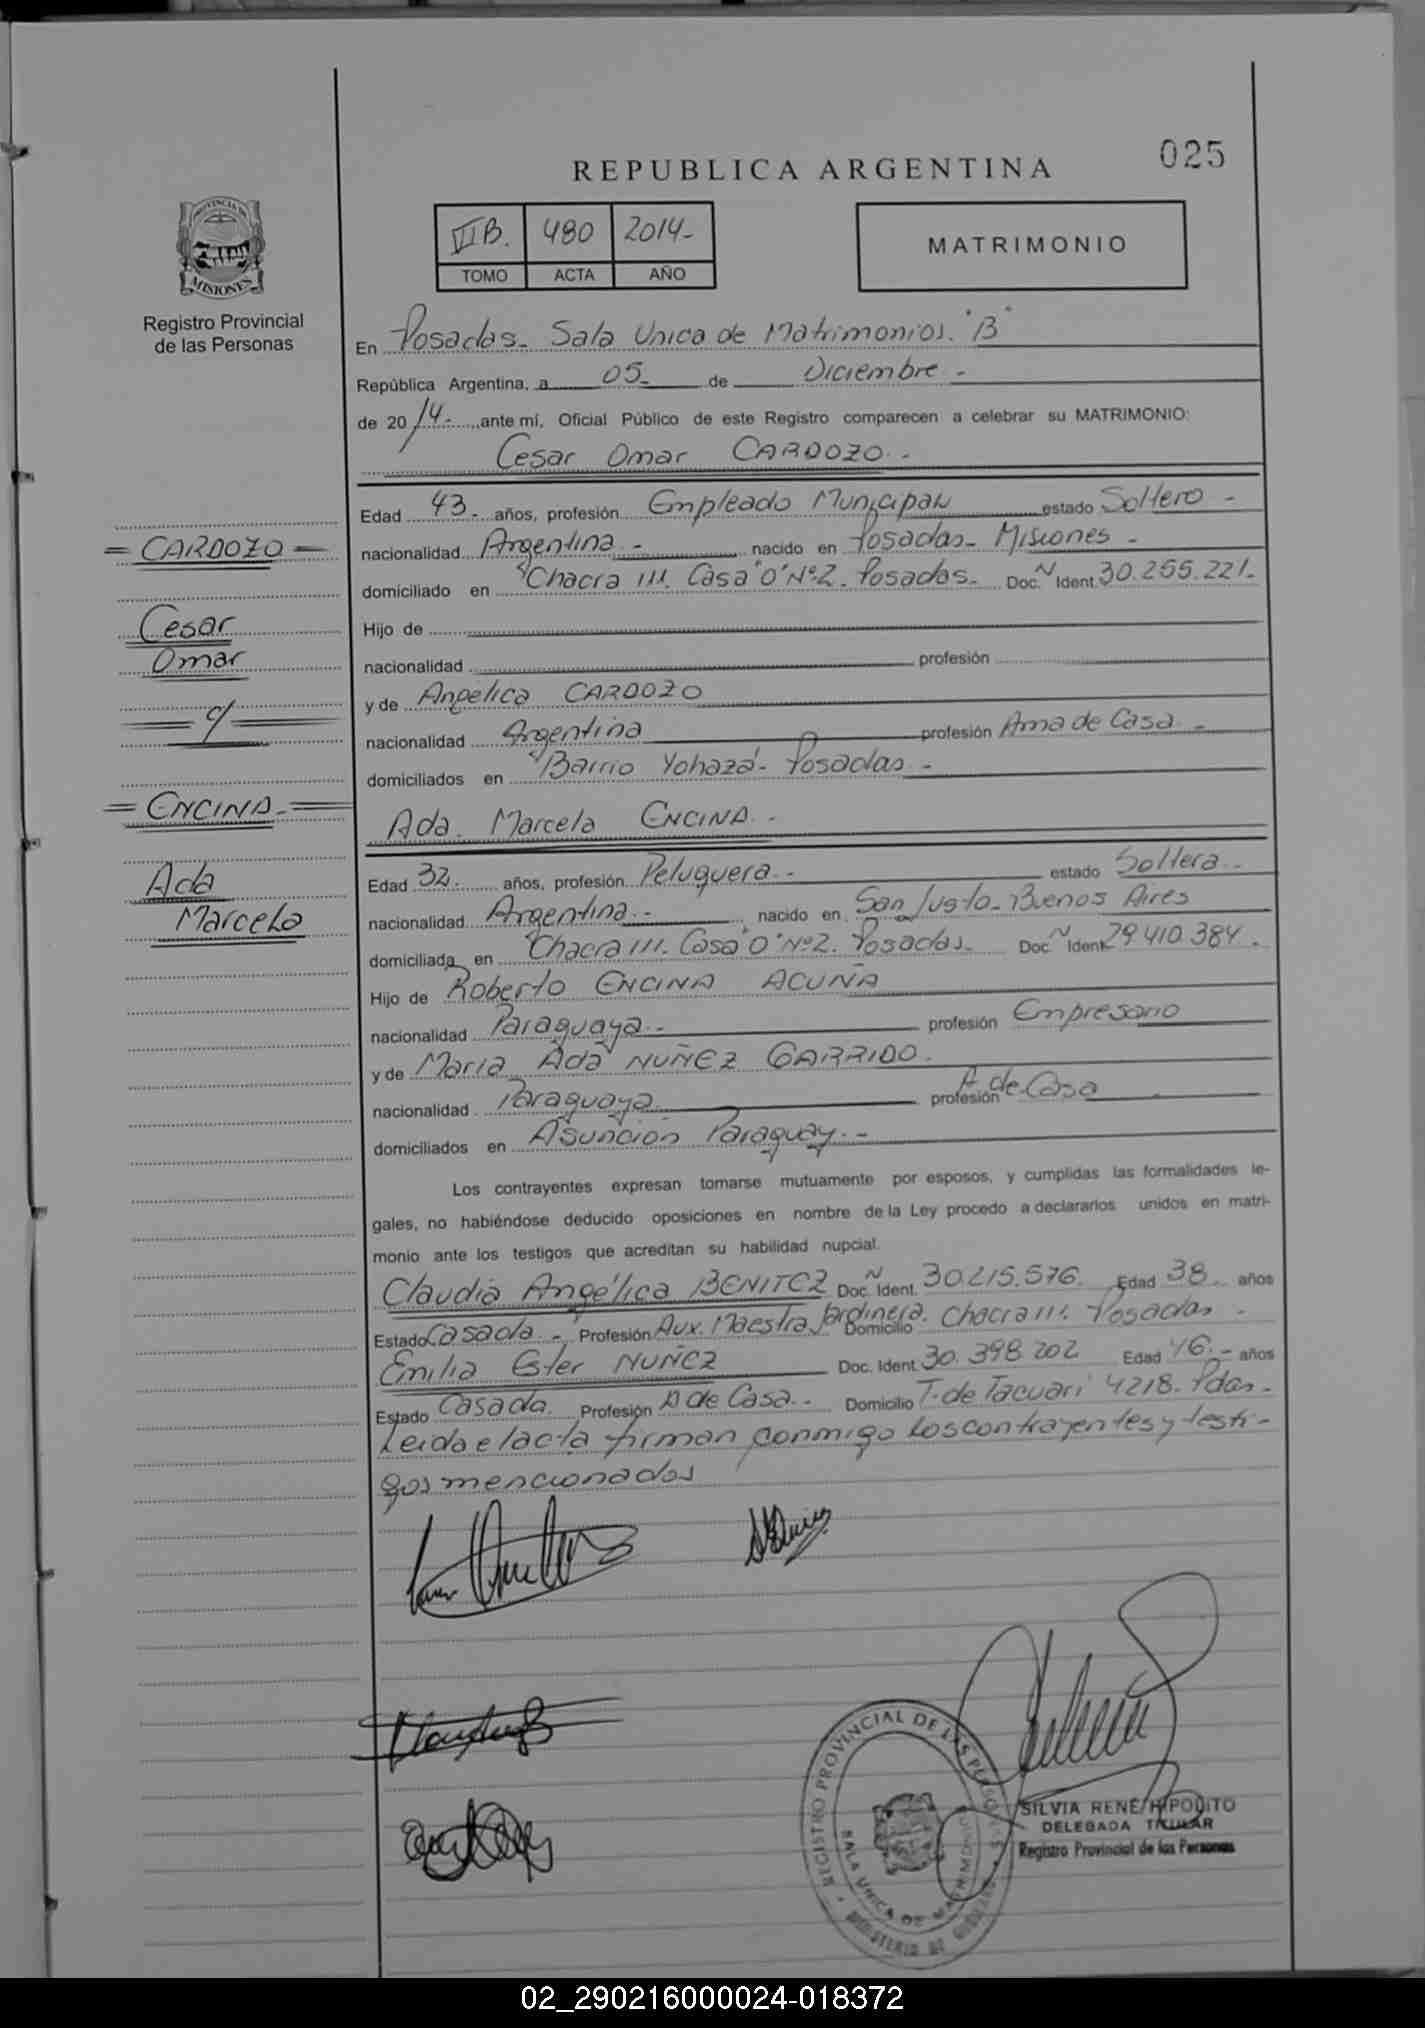 025
REPUBLICA ARGENTINA
PROVINCIA DE
MISIONES
Registro Provincial
de las Personas
III B. 480 2014-
TOMO ACTA AÑO
MATRIMONIO
En Posadas- Sala Unica de Matrimonios. "B"
República Argentina, a 05- de Diciembre -
de 2014.- ante mí, Oficial Público de este Registro comparecen a celebrar su MATRIMONIO:
Cesar Omar CARDOZO.-
Edad 43.- años, profesión Empleado Municipal estado Soltero -
= CARDOZO =
nacionalidad Argentina.- nacido en Posadas- Misiones -
domiciliado en "Chacra 111. Casa "O" Nº2. Posadas- Doc. N Ident. 30.255.221-
Cesar
Hijo de
Omar
nacionalidad profesión
y de Angelica CARDOZO
c/
nacionalidad Argentina profesión Ama de Casa.-
domiciliados en "Barrio Yohazá- Posadas.-
= ENCINA =
Ada. Marcela ENCINA.-
Ada
Edad 32. años, profesión Peluquera.- estado Soltera.-
Marcela
nacionalidad Argentina.- nacido en San Justo- Buenos Aires
domiciliada en "Chacra 111. Casa "O" Nº2. Posadas- Doc. N Ident. 29.410.384.
Hijo de Roberto ENCINA ACUÑA
nacionalidad Paraguaya.- profesión Empresario
y de Maria Ada NUÑEZ GARRIDO.
nacionalidad Paraguaya profesión A. de Casa
domiciliados en Asunción Paraguay.-
Los contrayentes expresan tomarse mutuamente por esposos, y cumplidas las formalidades le-
gales, no habiéndose deducido oposiciones en nombre de la Ley procedo a declararlos unidos en matri-
monio ante los testigos que acreditan su habilidad nupcial.
Claudia Angélica BENITEZ Doc. N Ident. 30.215.576. Edad 38. años
Estado Casada.- Profesión Aux. Maestra Jardinera. Domicilio Chacra 111. Posadas -
Emilia Ester NUÑEZ Doc. Ident. 30.398.202 Edad 46.- años
Estado Casada. Profesión A de Casa.- Domicilio T. de Tacuari 4218. Pdas.-
Leida el acta firman conmigo los contrayentes y testi-
gos mencionados
REGISTRO PROVINCIAL DE LAS PERSONAS
SALA UNICA DE MATRIMONIOS
MINISTERIO DE GOBIERNO
SILVIA RENE HIPOLITO
DELEGADA TITULAR
Registro Provincial de las Personas
02_290216000024-018372